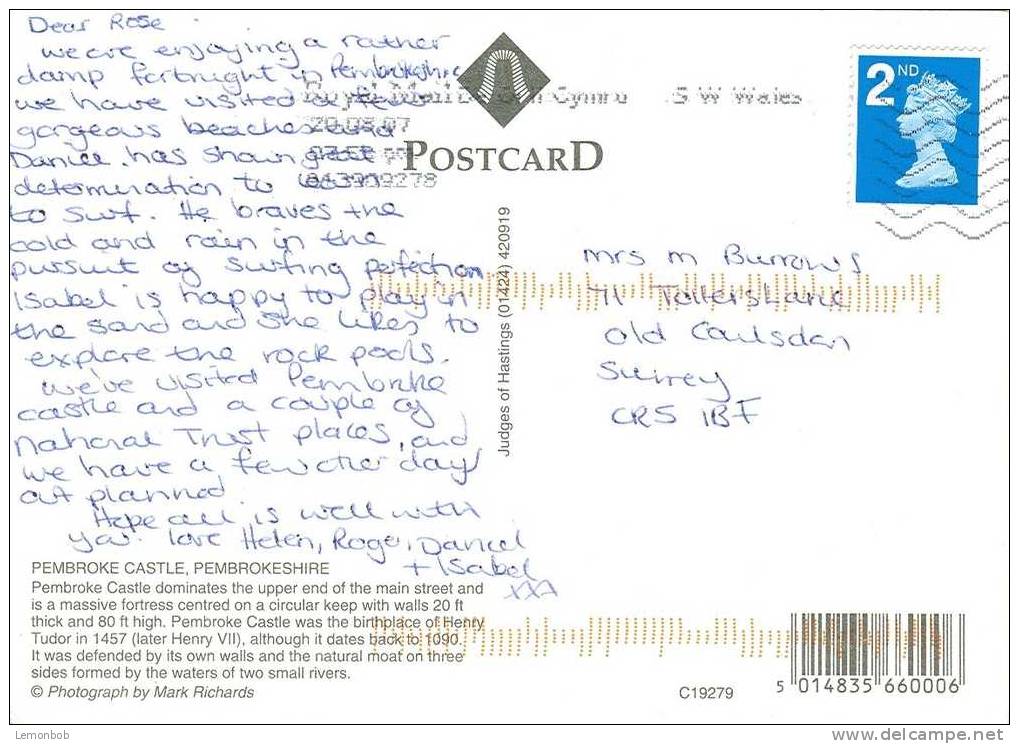 Dear Rose
we are enjoying a rather
damp fortnight in Pembrokeshire
we have visited a few
gorgeous beaches and
Daniel has shown great
determination to learn
to surf. He braves the
cold and rain in the
pursuit of surfing perfection
Isabel is happy to play in
the sand and she likes to
explore the rock pools.
we've visited Pembroke
castle and a couple of
National Trust places, and
we have a few other days
out planned.
Hope all is well with
you. love Helen, Roger, Daniel
+ Isabel
xxx
PEMBROKE CASTLE, PEMBROKESHIRE
Pembroke Castle dominates the upper end of the main street and
is a massive fortress centred on a circular keep with walls 20 ft
thick and 80 ft high. Pembroke Castle was the birthplace of Henry
Tudor in 1457 (later Henry VII), although it dates back to 1090.
It was defended by its own walls and the natural moat on three
sides formed by the waters of two small rivers.
© Photograph by Mark Richards
Royal Mail Cymru S W Wales
07
043909278
POSTCARD
Judges of Hastings (01424) 420919
2ND
Mrs M Burrows
71 Lane
Old Coulsdon
Surrey
CR5 1BF
C19279
5 014835 660006
Lemonbob
www.delcampe.net